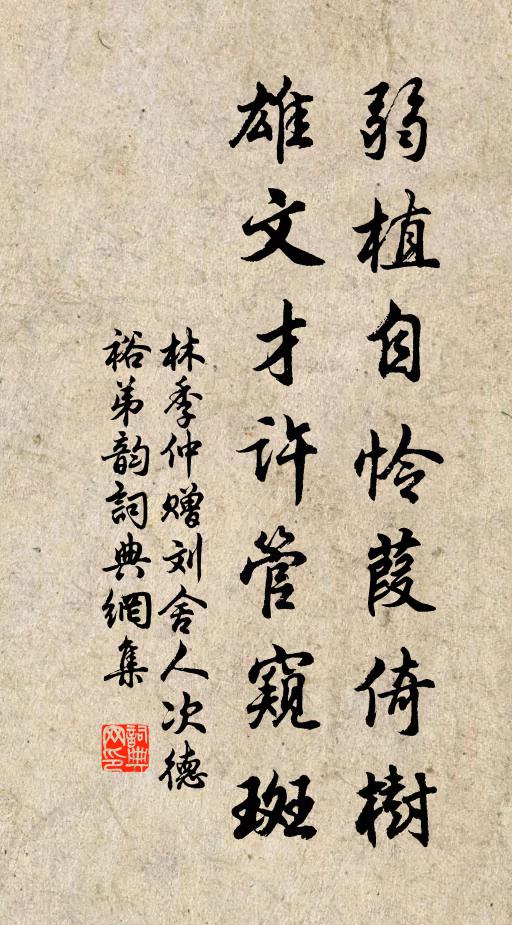 弱植自怜葭倚樹
雄文才许管窺斑
林季仲赠刘舍人次德
裕弟韵詞典網集
詞典网印